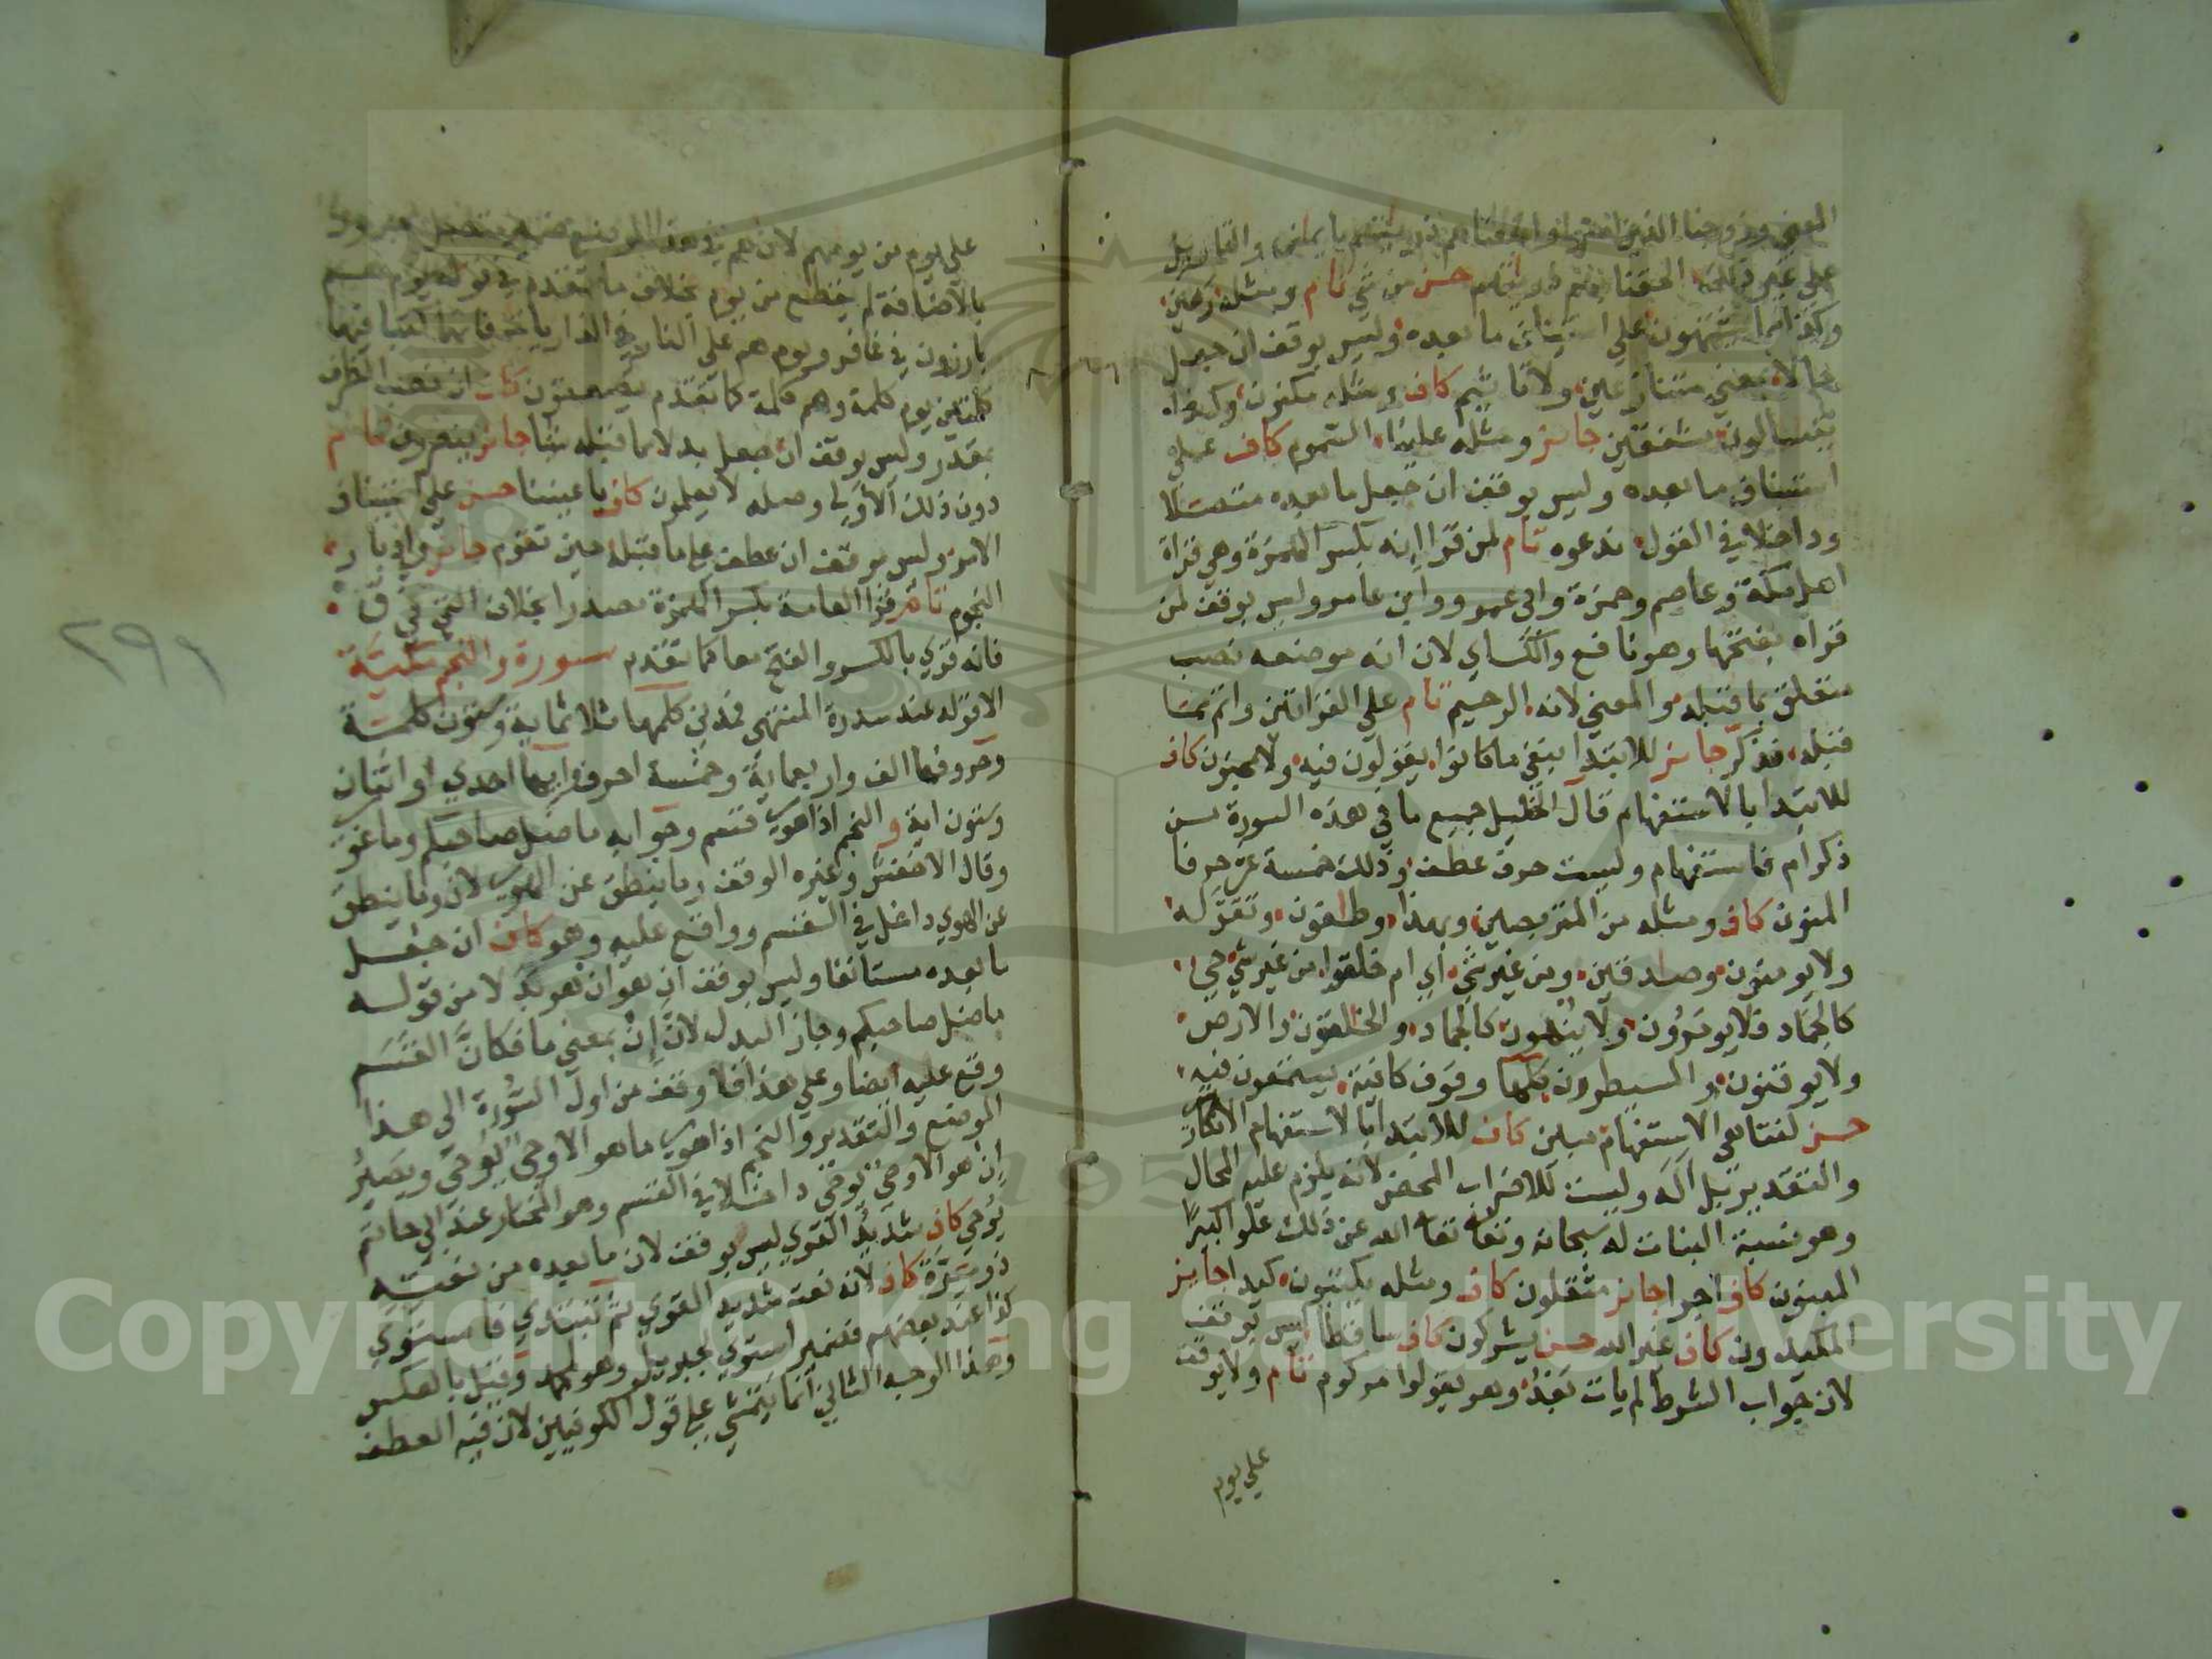 المعني وزوجنا الذين امنوا والحقنا بهم ذريتهم بايمان والقايل
على غير ذلك الحقنا بهم ذريتهم حسن من شي تام ومثله رهين
وكذا مما يشتهون على استيناف ما بعده وليس بوقف ان جعل
حالا بمعني متنازعين ولا تاثيم كاف ومثله مكنون وكذا
يتسالون مشفقين جائز ومثله علينا السموم كاف على
استيناف ما بعده وليس بوقف ان جعل ما بعده متصلا
وداخلا في القول ندعوه تام لمن قرا انه بكسر الهمزة وهي قراة
اهل مكة وعاصم وحمزة وابي عمرو وابن عامر وليس بوقف لمن
قراه بفتحها وهو نافع والكساي لان انه موضعه نصب
متعلق بما قبله والمعني لانه الرحيم تام على القراتين واتم مما
قبله فذكر جائز للابتدا بنفي ما كانوا يقولون فيه ولا مجنون كاف
للابتدا بالاستفهام قال الخليل جميع ما في هذه السورة من
ذكر ام فاستفهام وليست حرف عطف وذلك خمسة عشر حرفا
المنون كاف ومثله من المتربصين وبهذا وطاغون وتقوله
ولا يومنون وصادقين ومن غير شي اي ام خلقوا من غير شي حي
كالجماد فلا يومرون ولا ينهون كالجماد والخالقون والارض
ولا يوقنون والمسيطرون كلها وقوف كافية يستمعون فيه
حسن لتناهي الاستفهام مبين كاف للابتدا بالاستفهام الانكار
والتقدير بل اله وليست للاضراب المحض لانه يلزم عليه المحال
وهو نسبة البنات له سبحانه وتعا تعا الله عن ذلك علوا كبيرا
المبنون كاف اجرا جائز مثقلون كاف ومثله يكتبون كيدا جايز
المكيدون كاف غير الله حسن يشركون كاف ساقطا ليس بوقف
لان جواب الشرط لم يات بعد وهو يقولوا مركوم تام ولا يوقف
على يوم
على يوم من يومهم لان هم في هذا الموضع ضمير متصل مجرور
بالاضافة لم يقطع من يوم بخلاف ما تقدم في قوله يوم هم
بارزون في غافر ويوم هم على النار في الذاريات فانهما كتبا فيهما
كلمتين يوم كلمة وهم كلمة كما تقدم يصعقون كاف ان نصب الظرف
بمقدر وليس بوقف ان جعل بدلا مما قبله شيا جائز ينصرون تام
دون ذلك الاولى وصله لا يعلمون كاف باعيننا حسن على استيناف
الامر وليس بوقف ان عطف على ما قبله حين تقوم جايز وادبار
النجوم تام قرا العامة بكسر الهمزة مصدرا بخلاف التي في ق
فانه قري بالكسر والفتح معا كما تقدم سورة والنجم مكية
الا قوله عند سدرة المنتهى فمدني كلمها ثلاثماية وستون كلمة
وحروفها الف واربعماية وخمسة احرف وايها احدي او اثنتان
وستون اية والنجم اذا هوى قسم وجوابه ما ضل صاحبكم وما غوى
وقال الاخفش وغيره الوقف وما ينطق عن الهوى لان وما ينطق
عن الهوي داخل في القسم وواقع عليه وهو كاف ان جعل
ما بعده مستانفا وليس بوقف ان هو ان هو بدلا من قوله
ما ضل صاحبكم وجاز البدل لان إن بمعني ما فكان القسم
وقع عليه ايضا وعلى هذا فلا وقف من اول السورة الى هذا
الموضع والتقدير والنجم اذا هوى ما هو الا وحي يوحى ويصير
ان هو الا وحي يوحى داخلا في القسم وهو المختار عند ابي حاتم
يوحي كاف شديد القوي ليس بوقف لان ما بعده من نعته
ذو مرة كاف لانه نعت شديد القوي ثم تبتدي فاستوي
كذا عند بعضهم فضمير استوي لجبريل وهو لمحمد وقيل بالعكس
وهذا الوجه الثاني انما يتمشي على قول الكوفيين لان فيه العطف
٢٩١
Copyright © King Saud University
1957